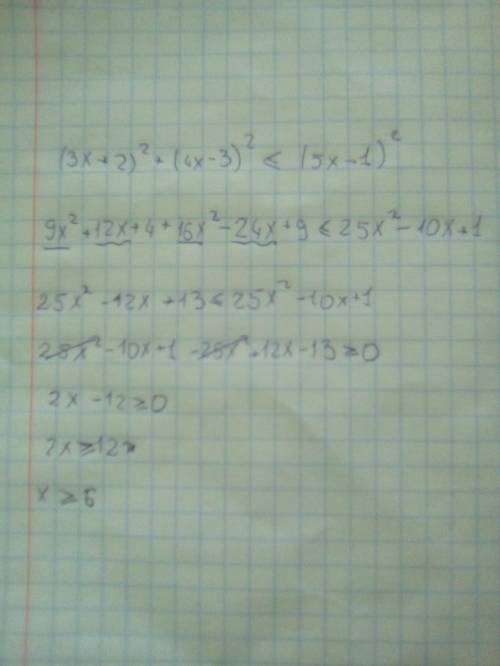 (3x+2)² + (4x-3)² ≤ (5x-1)²
9x² + 12x + 4 + 16x² - 24x + 9 ≤ 25x² - 10x + 1
25x² - 12x + 13 ≤ 25x² - 10x + 1
25x² - 10x + 1 - 25x² + 12x - 13 ≥ 0
2x - 12 ≥ 0
2x ≥ 12
x ≥ 6